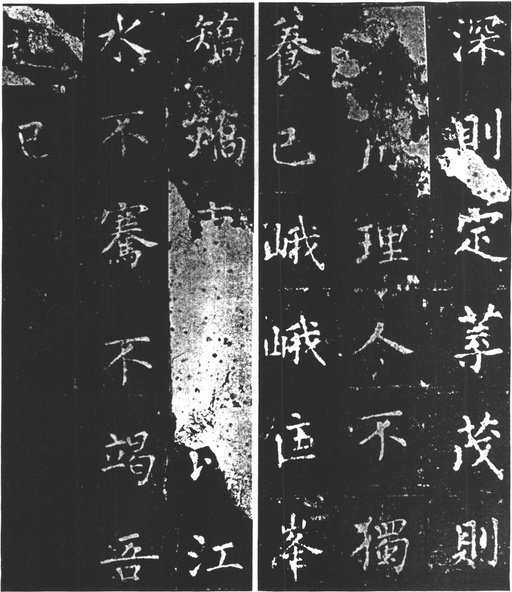 深則定茂則
理今不獨
養已峨峨匡峯
矯矯江
水不騫不竭吾
已